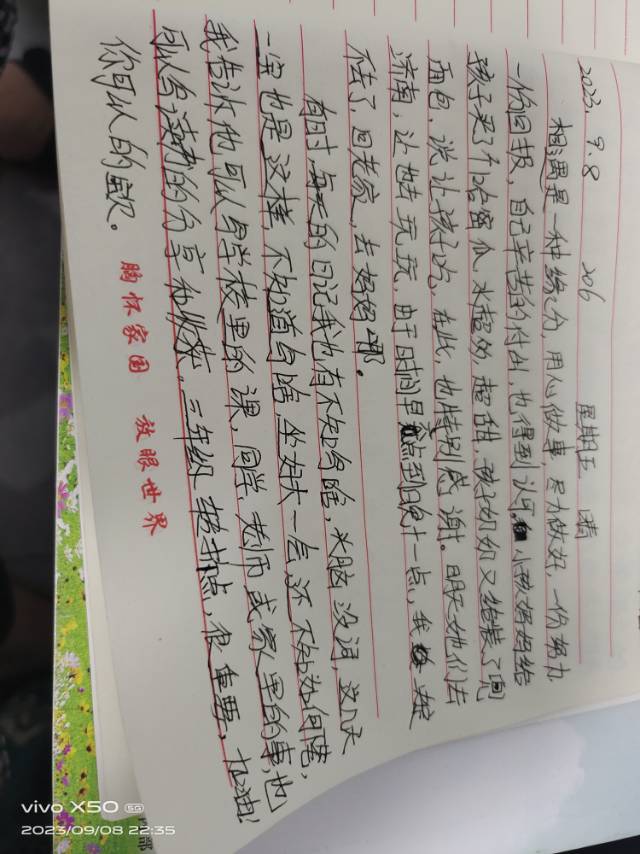 2023. 9. 8 206 星期五 晴
相遇是一种缘分,用心做事,尽力做好,一份努力
一份回报,自己辛苦的付出,也得到认可。小敏妈妈给
孩子买了个哈密瓜,水超多,超甜,孩子奶奶又给装了
面包,说让孩子吃,在此,也特别感谢。明天她们去
济南,让她去玩玩,由于时间早点到晚十一点,我
不去了,回老家,去妈妈那。
有时每天的日记我也有不知写啥,头脑没词,这几天
一宝也是这样,不知道写啥,坐好大一会,还不知如何写,
我告诉他可以写学校里的课,同学,老师或家人里的事,也
可以写读书的分享和收获。三年级转折点,很重要,加油!
你可以的宝贝。
胸怀家国 放眼世界
vivo X50 5G
2023/09/08 22:35